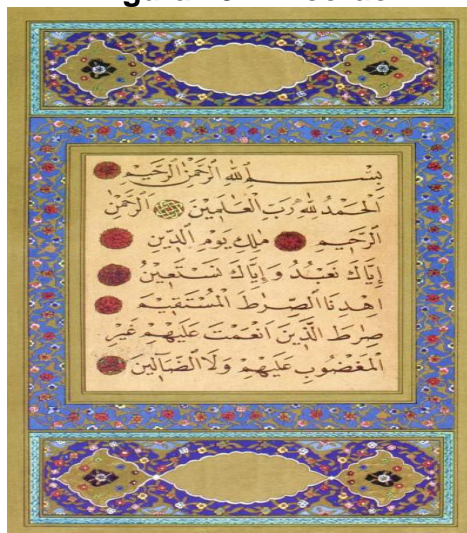 بِسْمِ ٱللَّهِ ٱلرَّحْمَٰنِ ٱلرَّحِيمِ
اَلْحَمْدُ لِلَّهِ رَبِّ الْعَالَمِينَ اَلرَّحْمٰنِ
الرَّحِيمِ مٰلِكِ يَوْمِ الدِّينِ
إِيَّاكَ نَعْبُدُ وَإِيَّاكَ نَسْتَعِينُ
اِهْدِنَا الصِّرٰطَ الْمُسْتَقِيمَ
صِرٰطَ الَّذِينَ اَنْعَمْتَ عَلَيْهِمْ غَيْرِ
الْمَغْضُوبِ عَلَيْهِمْ وَلَا الضَّٓالِّينَ